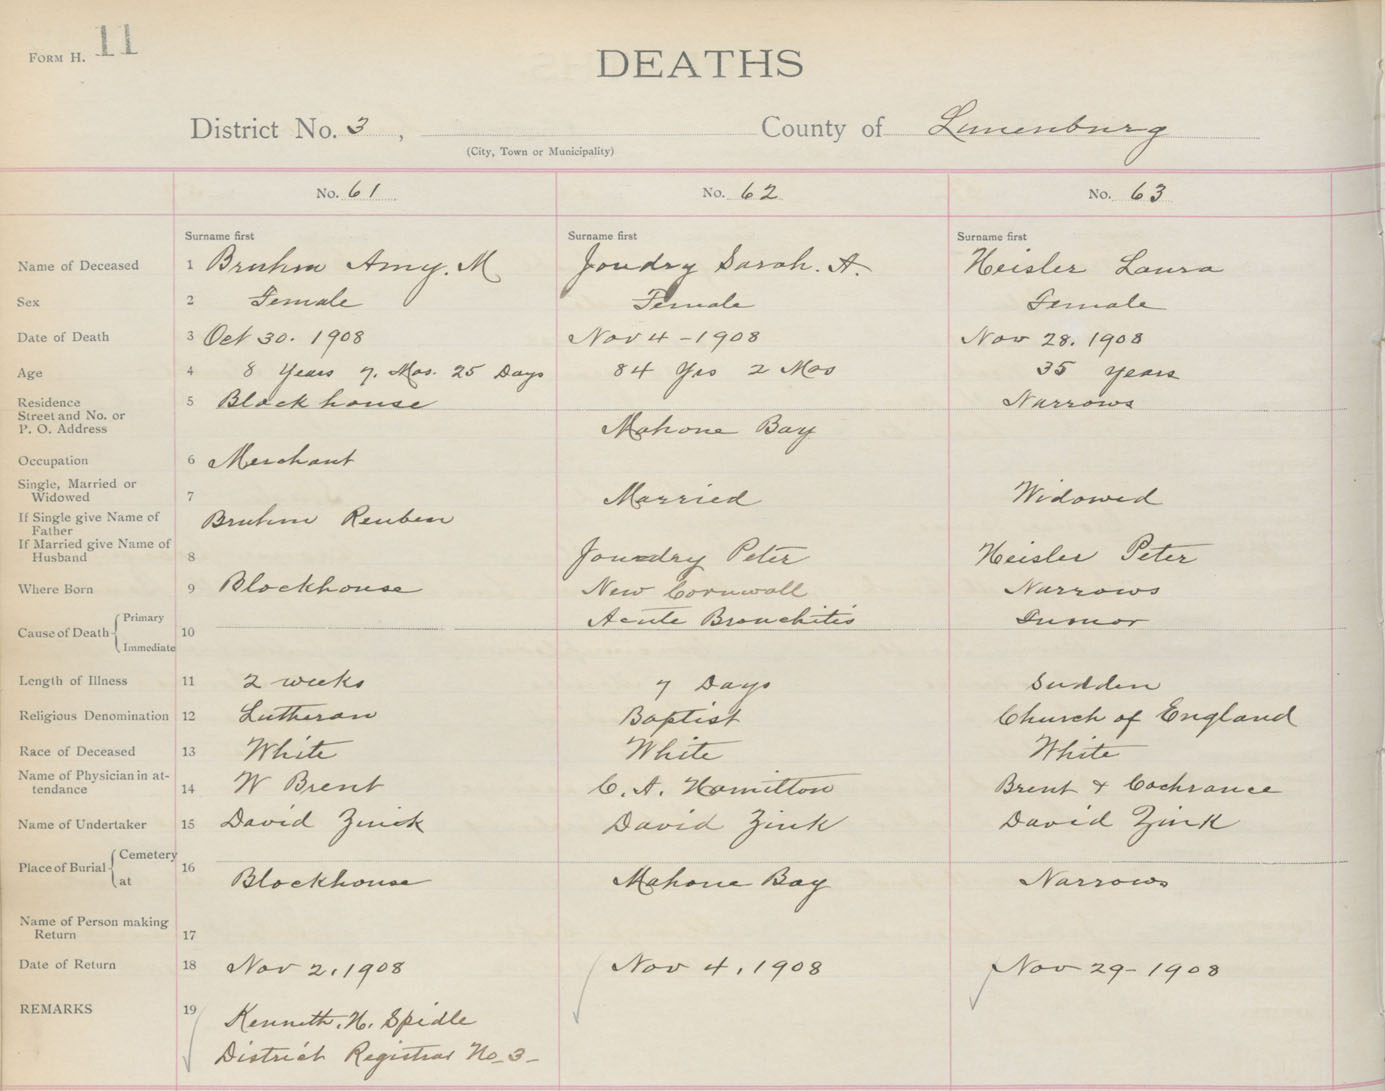 FORM H. 11
DEATHS
District No. 3, County of Lunenburg
(City, Town or Municipality)
No. 61 No. 62 No. 63
Surname first Surname first Surname first
Name of Deceased 1 Bruhm Amy. M Joudry Sarah. A. Heisler Laura
Sex 2 Female Female Female
Date of Death 3 Oct 30. 1908 Nov 4 - 1908 Nov 28. 1908
Age 4 8 Years 7. Mos. 25 Days 84 Yrs 2 Mos 35 years
Residence 5 Blockhouse Narrows
Street and No. or
P. O. Address Mahone Bay
Occupation 6 Merchant
Single, Married or
Widowed 7 Married Widowed
If Single give Name of
Father Bruhm Reuben
If Married give Name of
Husband 8 Joudry Peter Heisler Peter
Where Born 9 Blockhouse New Cornwall Narrows
Cause of Death Primary 10 Acute Bronchitis Tumor
Immediate
Length of Illness 11 2 weeks 7 Days Sudden
Religious Denomination 12 Lutheran Baptist Church of England
Race of Deceased 13 White White White
Name of Physician in at-
tendance 14 W Brent C. A. Hamilton Brent & Cochrance
Name of Undertaker 15 David Zinck David Zink David Zink
Place of Burial Cemetery 16
at Blockhouse Mahone Bay Narrows
Name of Person making
Return 17
Date of Return 18 Nov 2, 1908 Nov 4, 1908 Nov 29 - 1908
REMARKS 19 Kenneth. H. Spidle
District Registrar No - 3 -